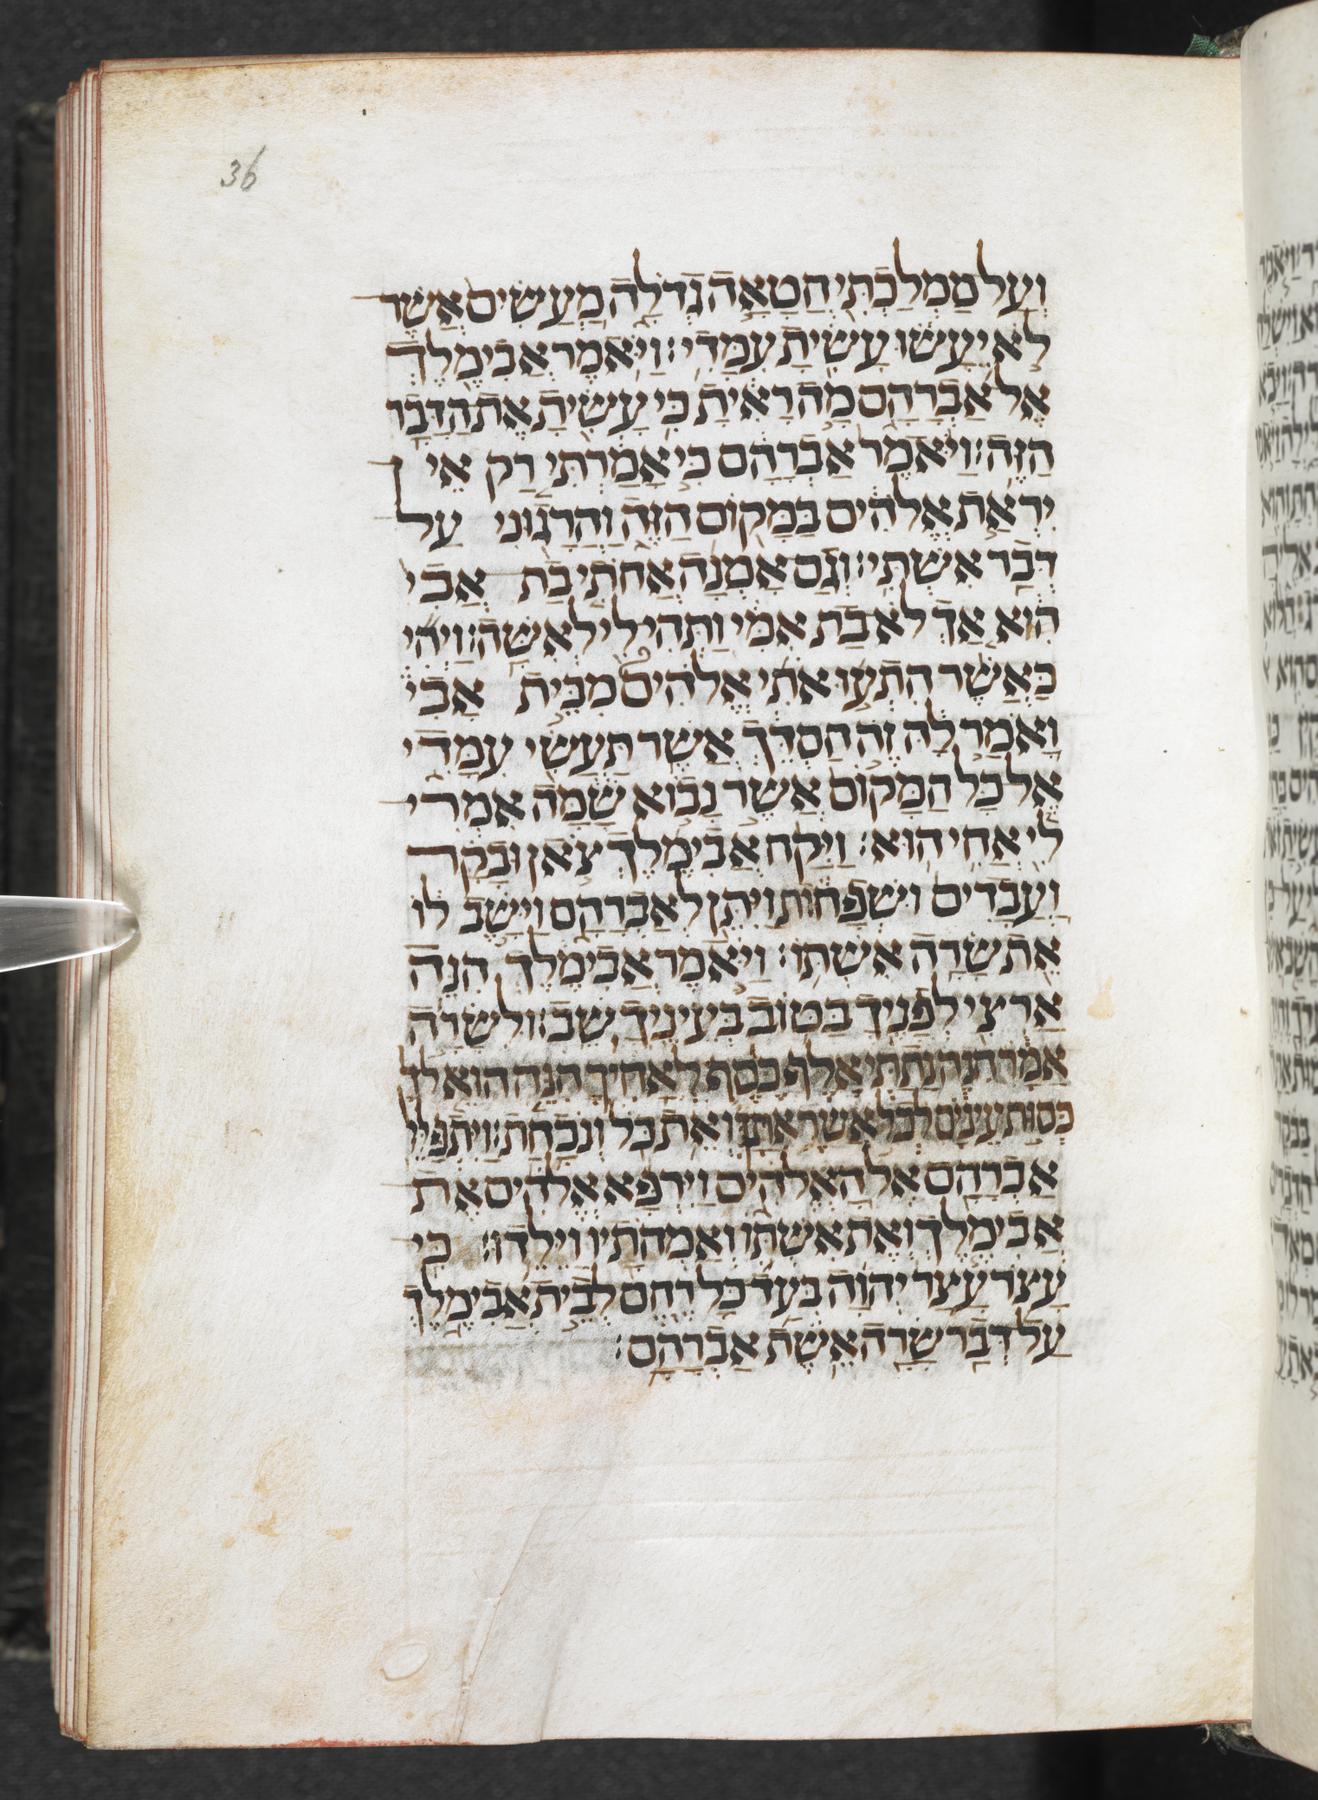 36
וְעַל מַמְלַכְתִּי חֲטָאָה גְדֹלָה מַעֲשִׂים אֲשֶׁר
לֹא יֵעָשׂוּ עָשִׂיתָ עִמָּדִי׃ וַיֹּאמֶר אֲבִימֶלֶךְ
אֶל אַבְרָהָם מָה רָאִיתָ כִּי עָשִׂיתָ אֶת הַדָּבָר
הַזֶּה׃ וַיֹּאמֶר אַבְרָהָם כִּי אָמַרְתִּי רַק אֵין
יִרְאַת אֱלֹהִים בַּמָּקוֹם הַזֶּה וַהֲרָגוּנִי עַל
דְּבַר אִשְׁתִּי׃ וְגַם אָמְנָה אֲחֹתִי בַת אָבִי
הִוא אַךְ לֹא בַת אִמִּי וַתְּהִי לִי לְאִשָּׁה׃ וַיְהִי
כַּאֲשֶׁר הִתְעוּ אֹתִי אֱלֹהִים מִבֵּית אָבִי
וָאֹמַר לָהּ זֶה חַסְדֵּךְ אֲשֶׁר תַּעֲשִׂי עִמָּדִי
אֶל כָּל הַמָּקוֹם אֲשֶׁר נָבוֹא שָׁמָּה אִמְרִי
לִי אָחִי הוּא׃ וַיִּקַּח אֲבִימֶלֶךְ צֹאן וּבָקָר
וַעֲבָדִים וּשְׁפָחוֹת וַיִּתֵּן לְאַבְרָהָם וַיָּשֶׁב לוֹ
אֵת שָׂרָה אִשְׁתּוֹ׃ וַיֹּאמֶר אֲבִימֶלֶךְ הִנֵּה
אַרְצִי לְפָנֶיךָ בַּטּוֹב בְּעֵינֶיךָ שֵׁב׃ וּלְשָׂרָה
אָמַר הִנֵּה נָתַתִּי אֶלֶף כֶּסֶף לְאָחִיךְ הִנֵּה הוּא לָךְ
כְּסוּת עֵינַיִם לְכֹל אֲשֶׁר אִתָּךְ וְאֵת כֹּל וְנֹכָחַת׃ וַיִּתְפַּלֵּל
אַבְרָהָם אֶל הָאֱלֹהִים וַיִּרְפָּא אֱלֹהִים אֶת
אֲבִימֶלֶךְ וְאֶת אִשְׁתּוֹ וְאַמְהֹתָיו וַיֵּלֵדוּ׃ כִּי
עָצֹר עָצַר יְהוָה בְּעַד כָּל רֶחֶם לְבֵית אֲבִימֶלֶךְ
עַל דְּבַר שָׂרָה אֵשֶׁת אַבְרָהָם׃